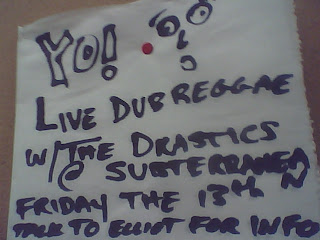 YO!
LIVE DUB REGGAE
W/ THE DRASTICS
@ SUBTERRANEAN
FRIDAY THE 13th
TALK TO ELLIOT FOR INFO